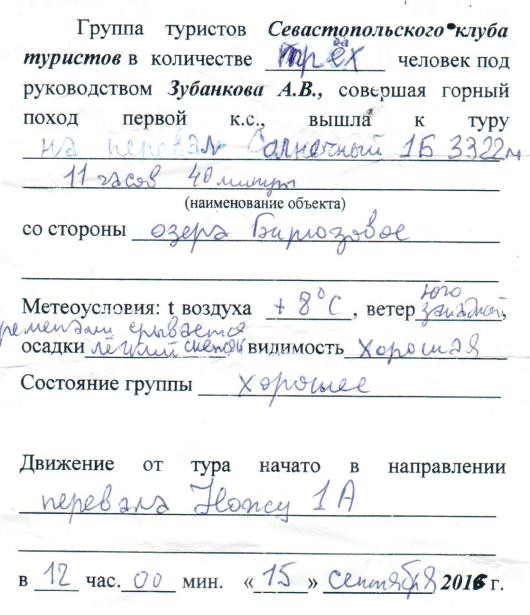 Группа туристов Севастопольского клуба
туристов в количестве трёх человек под
руководством Зубанкова А.В., совершая горный
поход первой к.с., вышла к туру
на перевал Солнечный 1Б 3322м
11 часов 40 минут
(наименование объекта)
со стороны озера Бирюзовое
Метеоусловия: t воздуха +8°C, ветер юго западный
временами срывается
осадки лёгкий снежок видимость хорошая
Состояние группы хорошее
Движение от тура начато в направлении
перевала 1А
в 12 час. 00 мин. «15» сентября 2016 г.